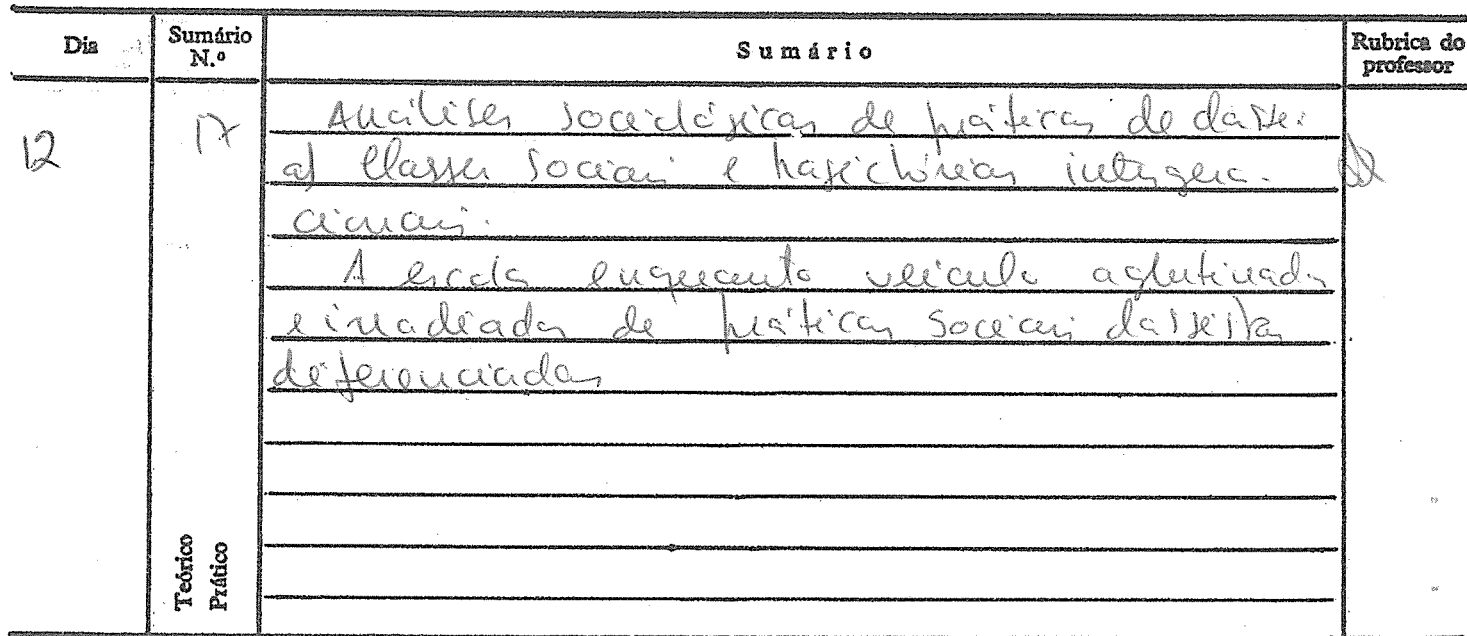 Dia
Sumário N.º
Sumário
Rubrica do professor
12
17
Análises sociológicas de práticas de classe:
a) Classes sociais e trajectórias intergera-
cionais.
A escola enquanto veículo aglutinador
e irradiador de práticas sociais classistas
diferenciadas
Teórico
Prático